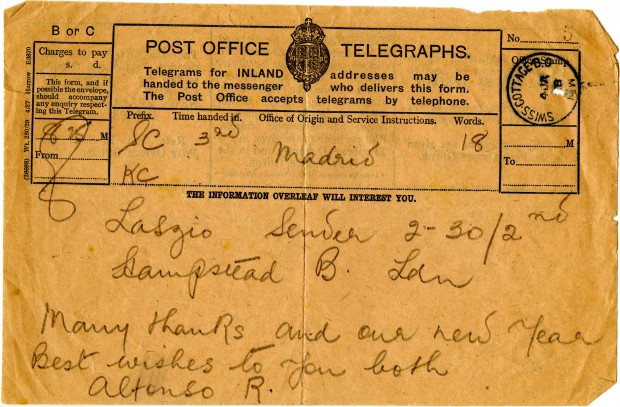 B or C
Charges to pay
s. d.
This form, and if
possible the envelope,
should accompany
any enquiry respect-
ing this Telegram.
POST OFFICE TELEGRAPHS.
Telegrams for INLAND addresses may be
handed to the messenger who delivers this form.
The Post Office accepts telegrams by telephone.
No. 5
Office Stamp
SWISS COTTAGE B.O
4 JA
M
From
Prefix. Time handed in. Office of Origin and Service Instructions. Words.
SC 3rd Madrid 18
KC
M
To
THE INFORMATION OVERLEAF WILL INTEREST YOU.
Laszio Sender 2-30/2nd
Hampstead B. Ldn
Many thanks and our new year
Best wishes to you both
Alfonso R.